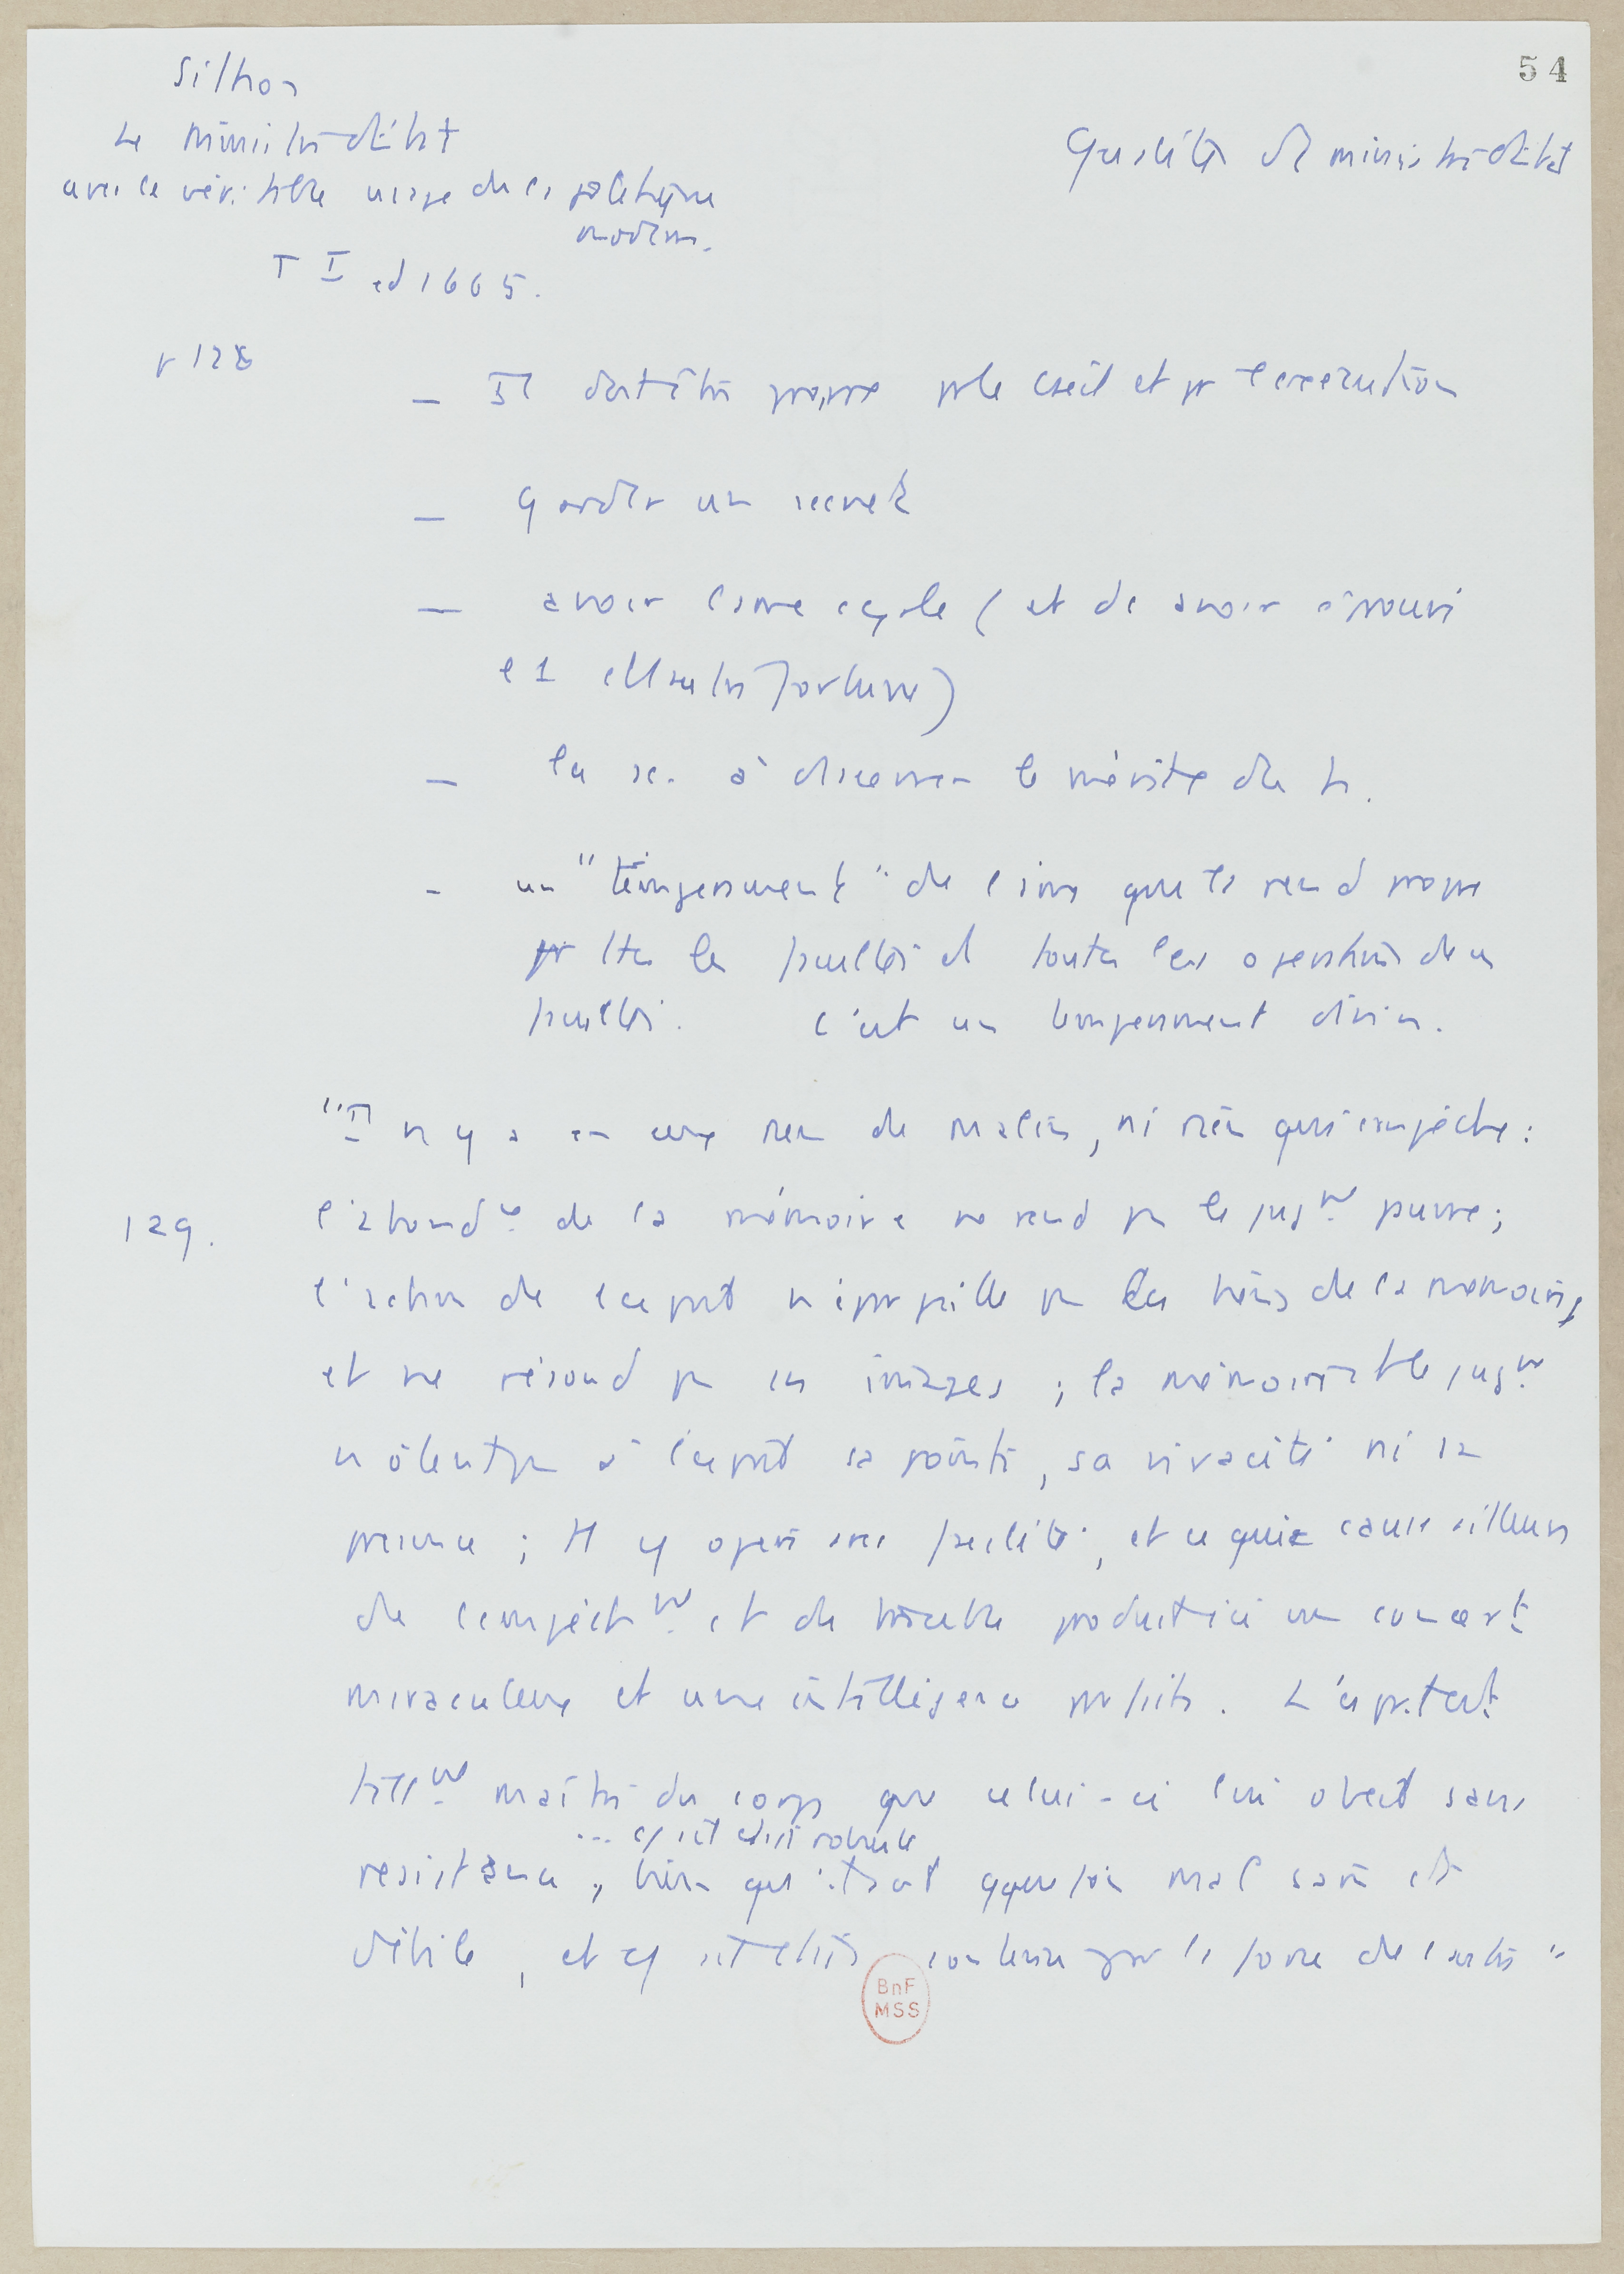 54
Silhon
Le Ministre d'État
avec le véritable usage de la politique
moderne.
T I ed 1665.
Qualités du ministre d'État
p 128
— Il doit être propre pr le cseil et pr l'exécution
— garder un secret
— avoir l'âme égale (et de avoir éprouvé
l'1 et l'autre fortune)
— à discerner le mérite des h.
— un "tempérament" de l'âme qui le rend propre
pr ttes les facultés et toutes les opérations de ces
facultés. C'est un tempérament divin.
"Il n'y a en eux rien de malin, ni rien qui empêche :
129.
l'abondce de la mémoire ne rend pas le jugmt pauvre ;
l'action de l'esprit n'éparpille pas les traits de la mémoire,
et ne résoud pas ses images ; la mémoire et le jugmt
n'ôtent pas à l'esprit sa pointe, sa vivacité ni sa
; tt y opère avec facilité, et ce qui cause ailleurs
de l'empêchmt et du trouble produit ici un concert
miraculeux et une intelligence parfaite. L'esprit est
tellmt maître du corps que celui-ci lui obéit sans
... robuste
résistance, bien qu'il soit qquefois mal sain et
débile, et par la force de l'autre"
BnF
MSS